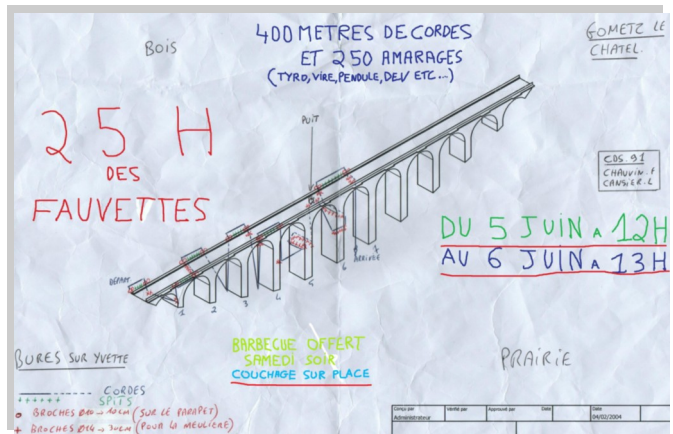 BOIS
400 METRES DE CORDES
ET 250 AMARAGES
(TYRO, VIRE, PENDULE, DEV ETC...)
GOMETZ LE
CHATEL.
25 H
DES
FAUVETTES
PUIT
CDS. 91
CHAUVIN. F
CANSIER. L
DU 5 JUIN A 12H
AU 6 JUIN A 13H
DEPART
ARRIVEE
1 2 3 4 5 6 7
BARBECUE OFFERT
SAMEDI SOIR
COUCHAGE SUR PLACE
PRAIRIE
BURES SUR YVETTE
CORDES
SPITS
BROCHES Ø10 → 10CM (SUR LE PARAPET)
+ BROCHES Ø14 → 30CM (POUR LA MEULIERE)
Conçu par Vérifié par Approuvé par Date Date
Administrateur 04/02/2004